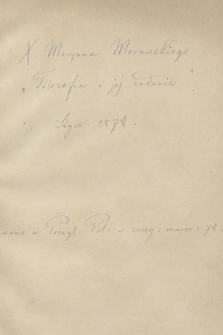 X Maryana Morawskiego
"Filozofia i jej zadanie".
Stycz. 1878.
w Przegl. Pol. w marcu 78